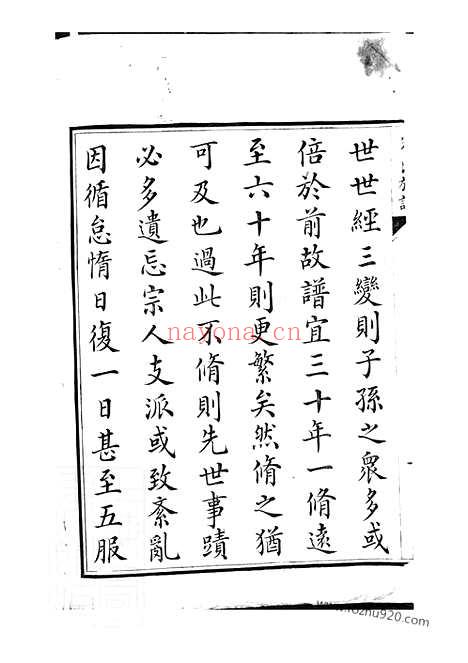 世世經三變則子孫之眾多或
倍於前故譜宜三十年一脩遠
至六十年則更繁矣然脩之猶
可及也過此不脩則先世事蹟
必多遺忘宗人支派或致紊亂
因循怠惰日復一日甚至五服
nayona.cn
www.fozhu920.com